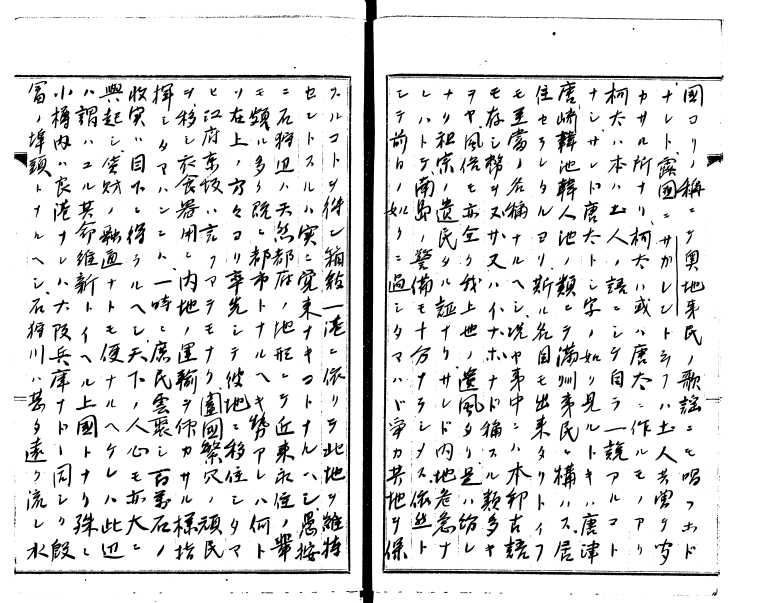 國ヨリノ稱ニテ奧地夷民ノ歌謡ニモ唱フホド
ナレト露國ニサカレントシフハ土人共實ヲ
カサル所ナリ柯太ハ或ハ唐太ニ作ルモノアリ
柯太ハ本ハ土人ノ語ニシテ自ラ一說アルコト
ナシサレド唐太トシ字ノ如リ見ルトキハ唐津
唐崎韓池韓人地ノ類ニテ滿洲夷民ト構ハス居
住セラレタルヨリ斯ル名目モ出来タリトイフ
モ至當ノ名稱ナルヘシ況ヤ夷中ニハ本邦古語
モ存シ幣ヲヌサ又ハイナホナド稱スル類多キ
ヲヤ風俗モ亦全ク我上世ノ遺風タリ是ハ紛レ
ナリ祖宗ノ遺民タル証ナリサレド内地危急ナ
レハトテ南島ノ警備モ十分ナラシメス依然ト
シテ前日ノ如クニ過シタマハド爭カ共地ヲ保
スルコトヲ得ン箱館一港ニ依リテ此地ヲ維持
セントスルハ実ニ覚束ナキコトナルハシ愚按
ニ石狩辺ハ天然都府ノ地形ニテ近来永住ノ輩
モ頗ル多ク既ニ都市トナルヘキ勢アレハ何ト
リ在上ノ方々ヨリ率先シテ彼地ニ移住シタマ
ヒ江府京坂ハ言フマテモナク圍國繁穴ノ頑民
ヲ移シ衣食器用モ内地ノ運輸ヲ仰カサル様指
揮シタマハンニハ一時ニ庶民雲聚シ百萬石ノ
收実ハ目下ニ得ラルヘシ天下ノ人心モ亦大ニ
興起シ貨財ノ融通ナトモ便ナルヘケレハ此辺
ハ謂ハユル其命維新トイヘル上國トナリ殊ニ
小樽内ハ良港ナレハ大阪兵庫ナドト同シク殷
富ノ埠頭トナルヘシ石狩川ハ甚タ遠ク流レ水